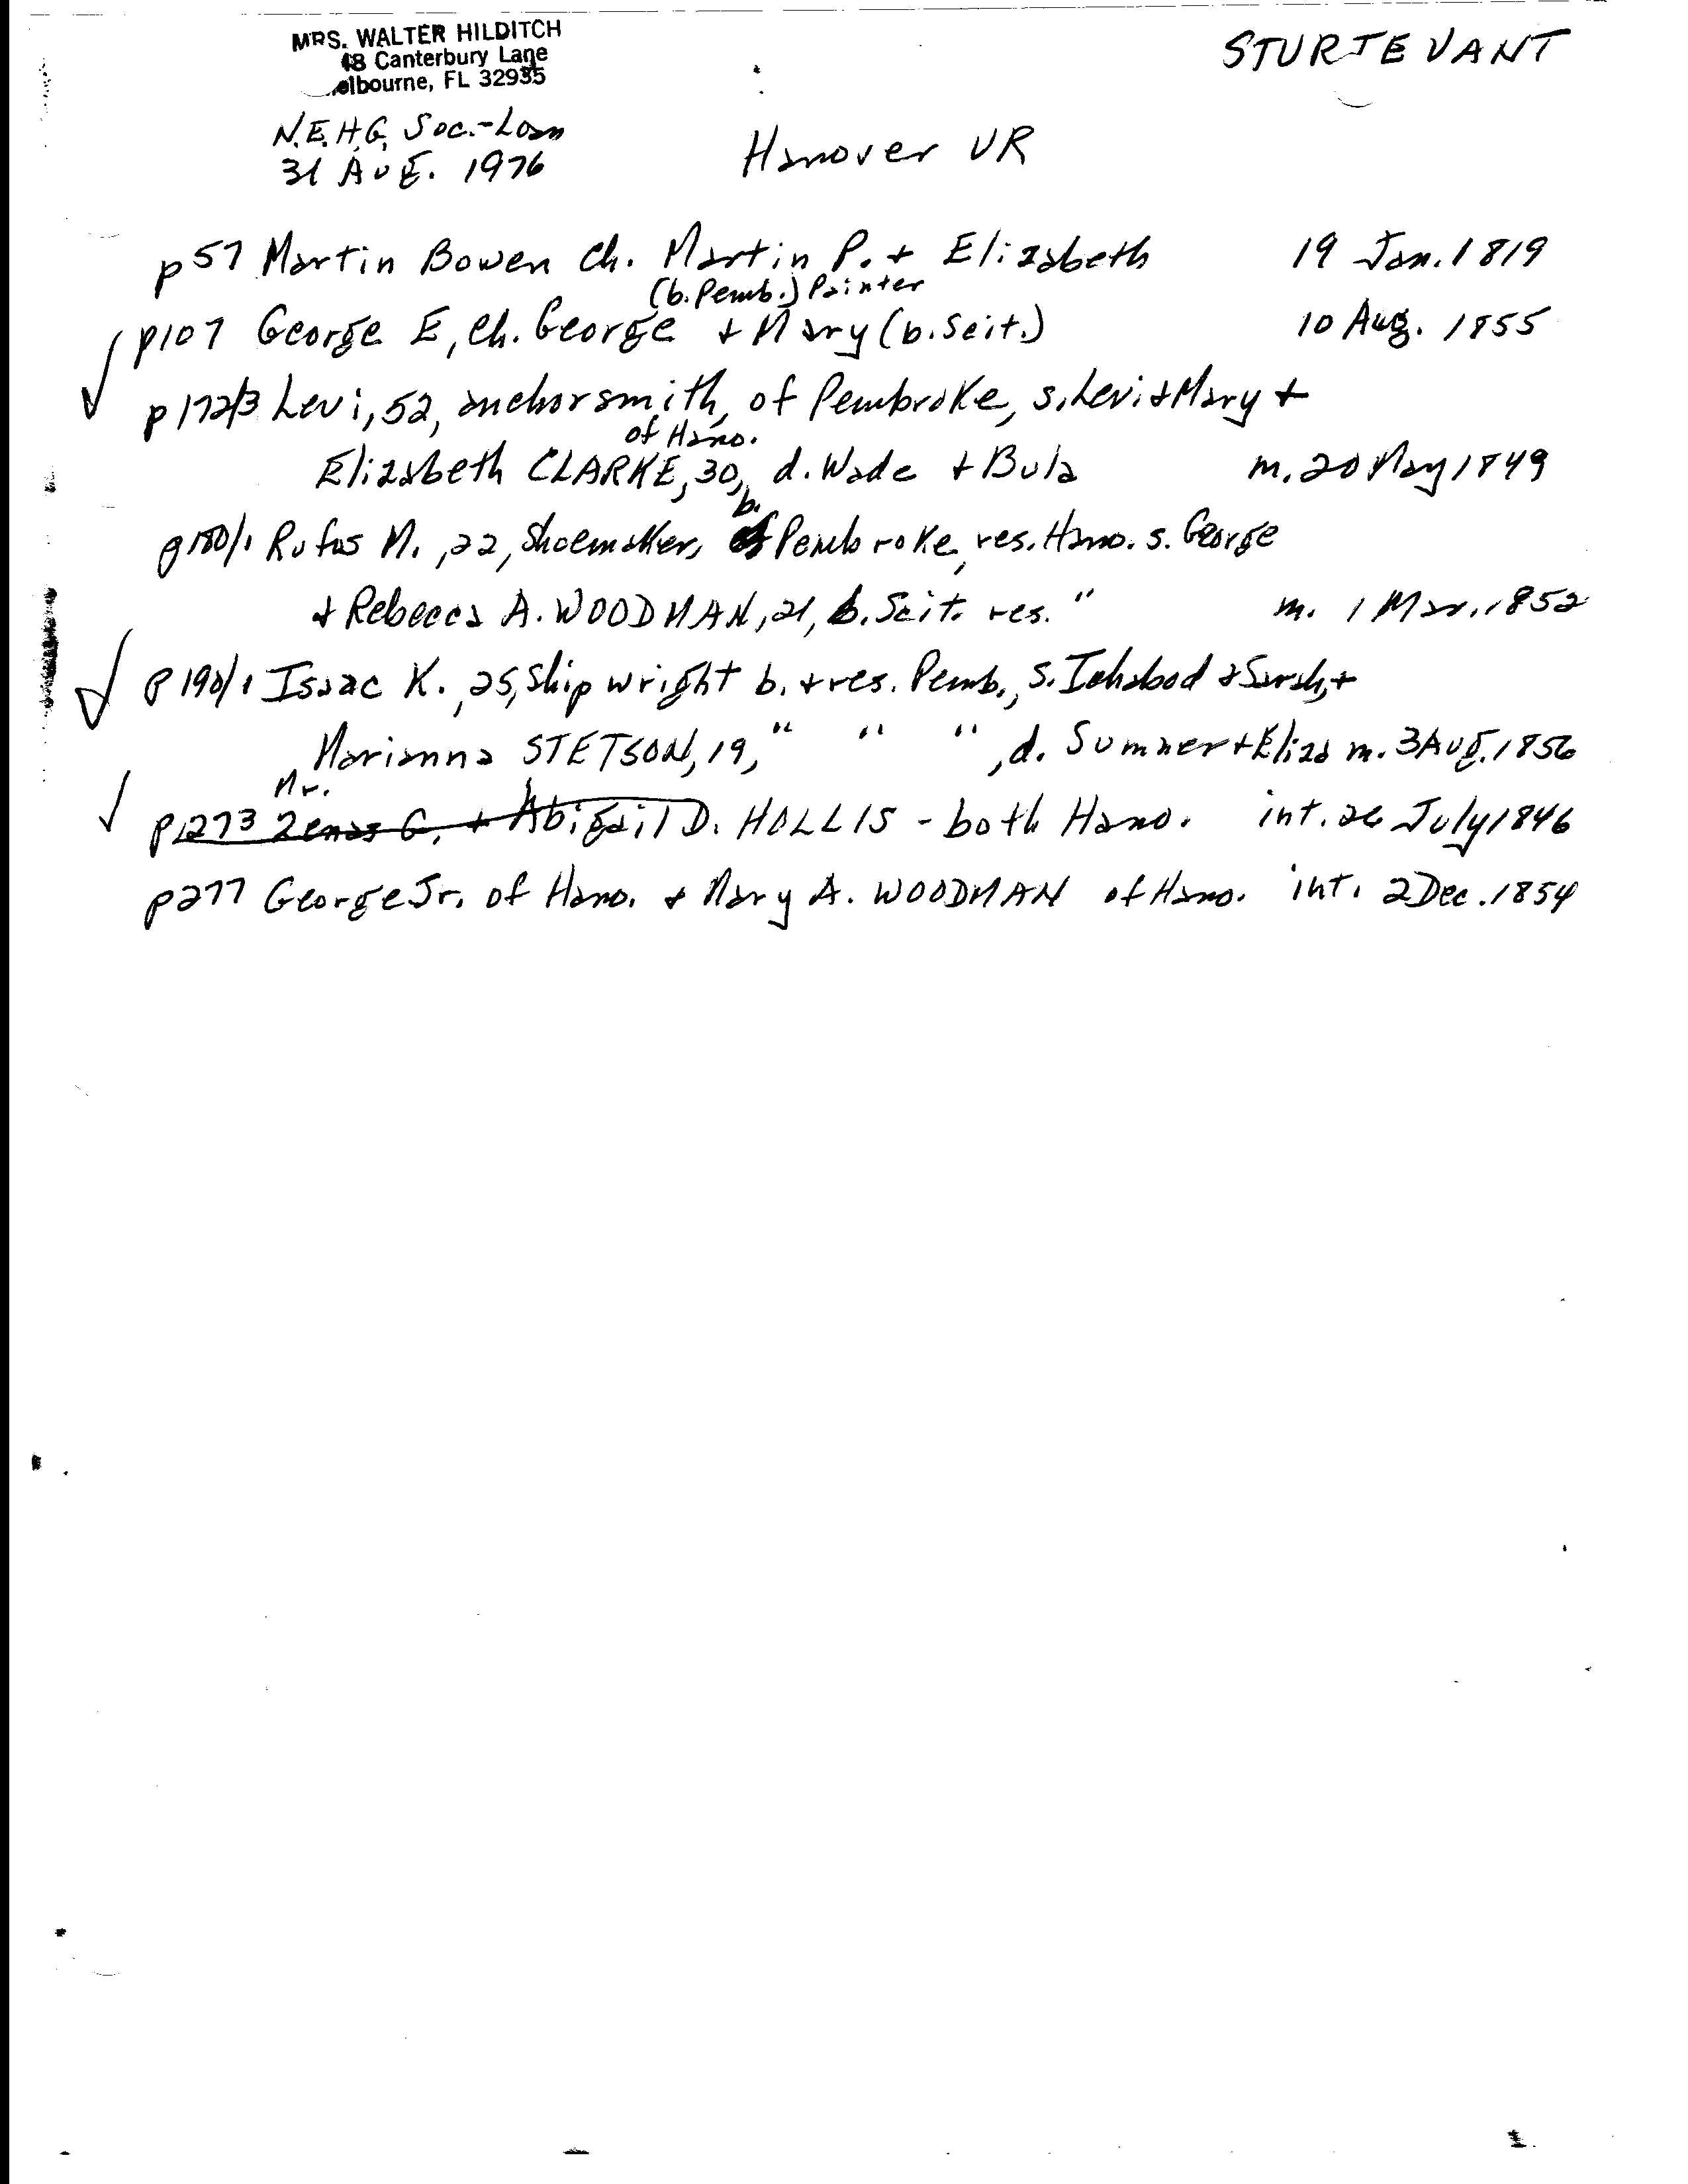 MRS. WALTER HILDITCH
48 Canterbury Lane
elbourne, FL 32935
STURTEVANT
N.E.H.G. Soc.-Loan
31 Aug. 1976
Hanover VR
p57 Martin Bowen ch. Martin P. + Elizabeth 19 Jan. 1819
(b. Pemb.) Painter
p107 George E, ch. George + Mary (b. Scit.) 10 Aug. 1855
p172/3 Levi, 52, anchorsmith, of Pembroke, s. Levi + Mary +
of Hano.
Elizabeth CLARKE, 30, d. Wade + Bula m. 20 May 1849
b.
p180/1 Rufus M., 22, Shoemaker, Pembroke, res. Hano. s. George
+ Rebecca A. WOODMAN, 21, b. Scit. res. " m. 1 Mar. 1852
p190/1 Isaac K., 25, Shipwright b. + res. Pemb., s. Ichabod + Sarah, +
Marianna STETSON, 19, " " ", d. Sumner + Eliza m. 3 Aug. 1856
Mr.
p273 Zenas G. + Abigail D. HOLLIS - both Hano. int. 26 July 1846
p277 George Jr. of Hano. + Mary A. WOODMAN of Hano. int. 2 Dec. 1854